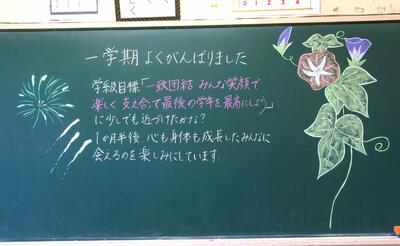 一学期 よくがんばりました
学級目標「一致団結 みんな笑顔で
楽しく 支え合って最後の学年を最高にしよう」
に少しでも近づけたかな?
1か月半後、心も身体も成長したみんなに
会えるのを楽しみにしています.